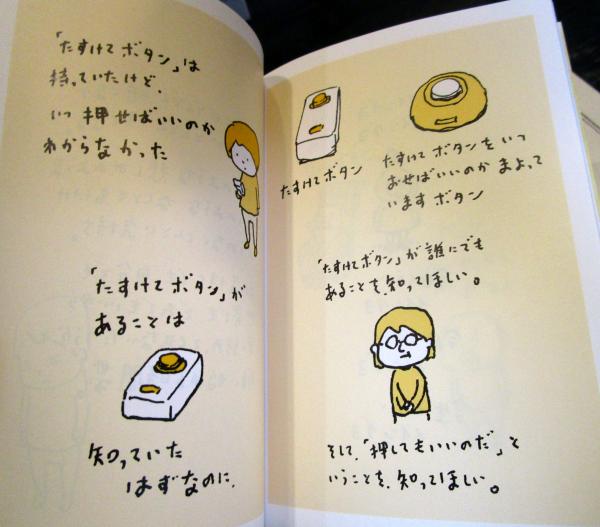 「たすけてボタン」は
持っていたけど、
いつ押せばいいのか
わからなかった
「たすけてボタン」が
あることは
知っていた
はずなのに、
たすけてボタン
たすけてボタンをいつ
おせばいいのかまよって
いますボタン
「たすけてボタン」が誰にでも
あることを、知ってほしい。
そして、「押してもいいのだ」と
いうことを、知ってほしい。